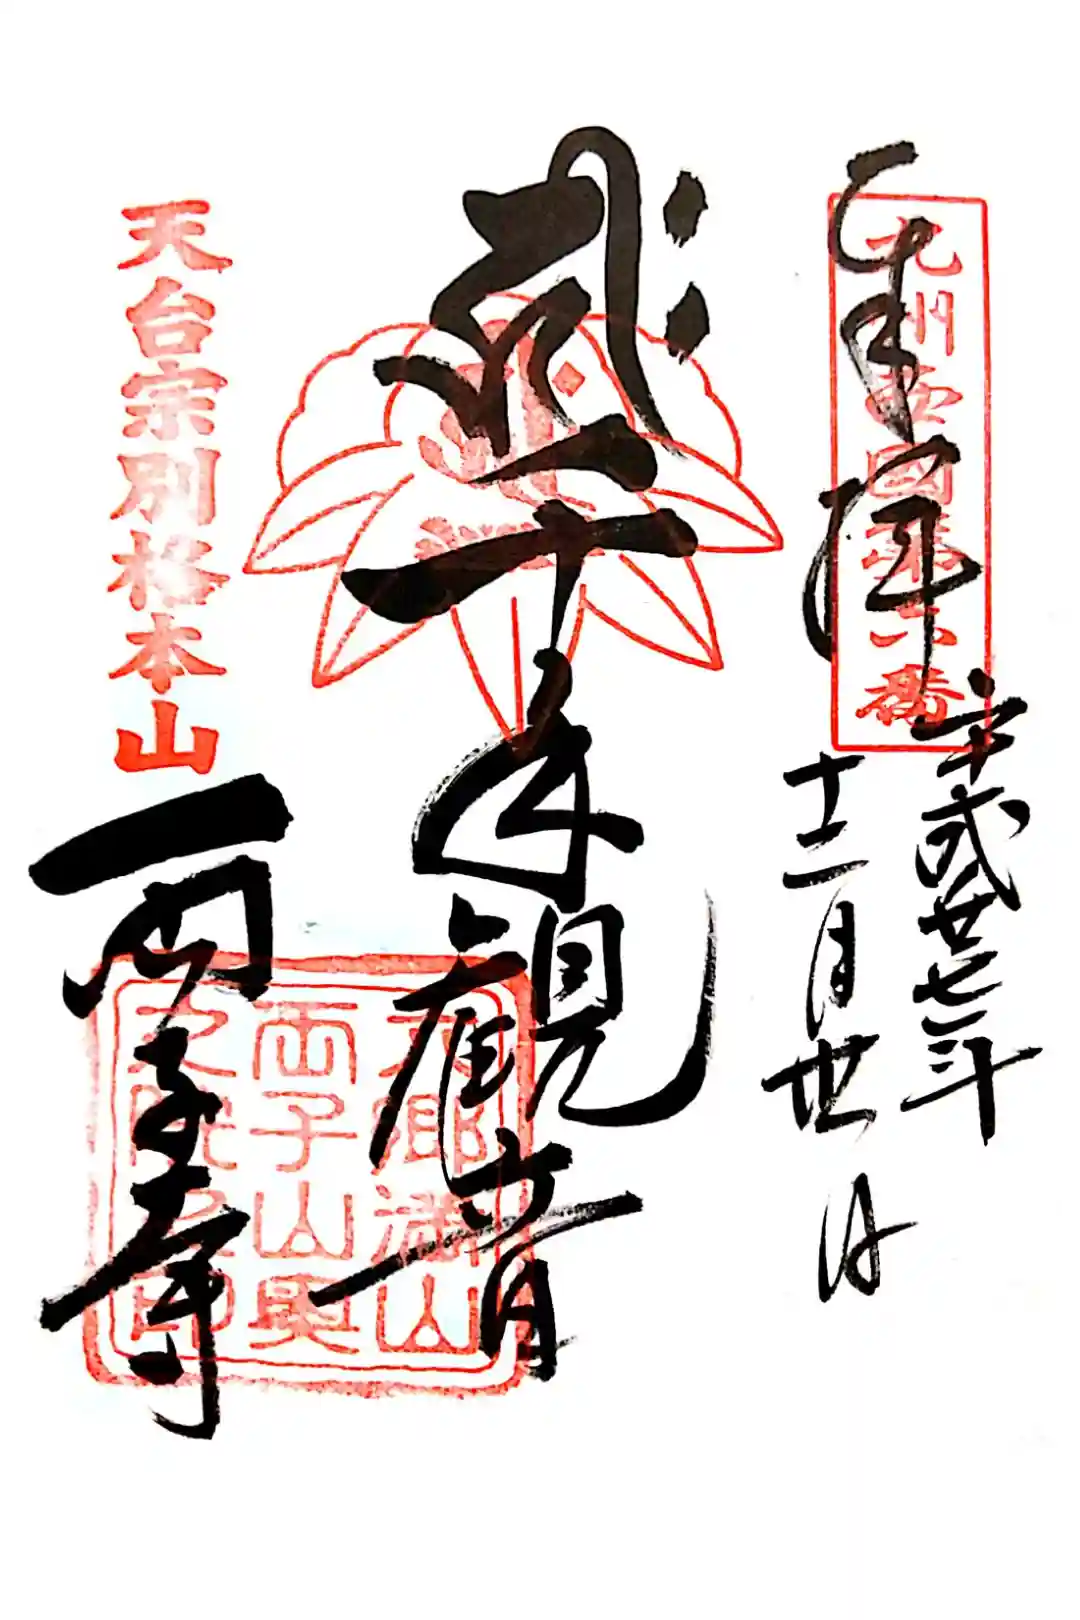 奉拝
九州西國第六番
平成廿七年
十二月廿日
千手観音
天台宗別格本山
両子寺
足曳山
両子山奥
之院宝印